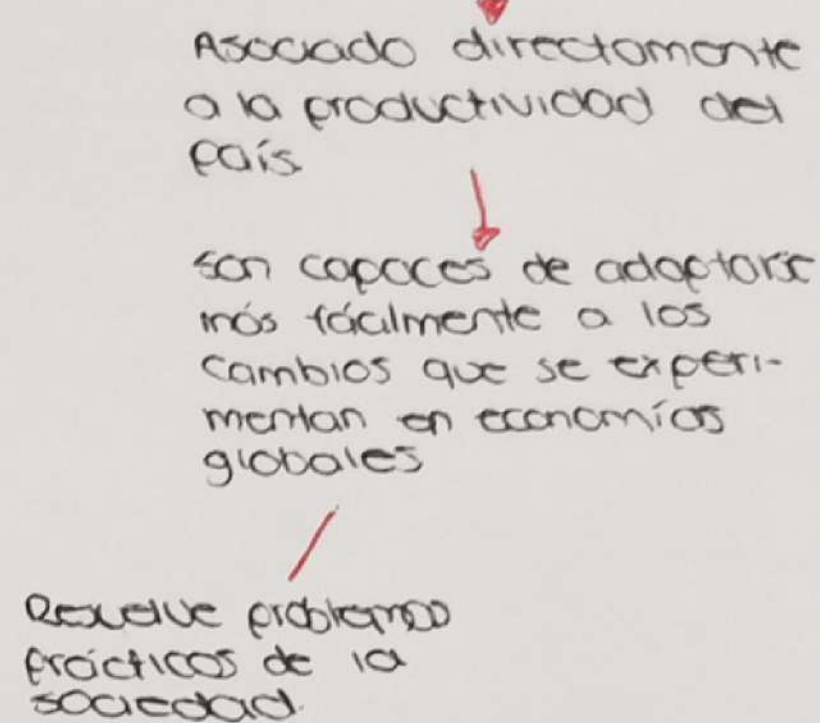 Asociado directamente
a la productividad del
país
son capaces de adaptarse
más fácilmente a los
cambios que se experi-
mentan en economías
globales
Resuelve problemas
prácticos de la
sociedad.